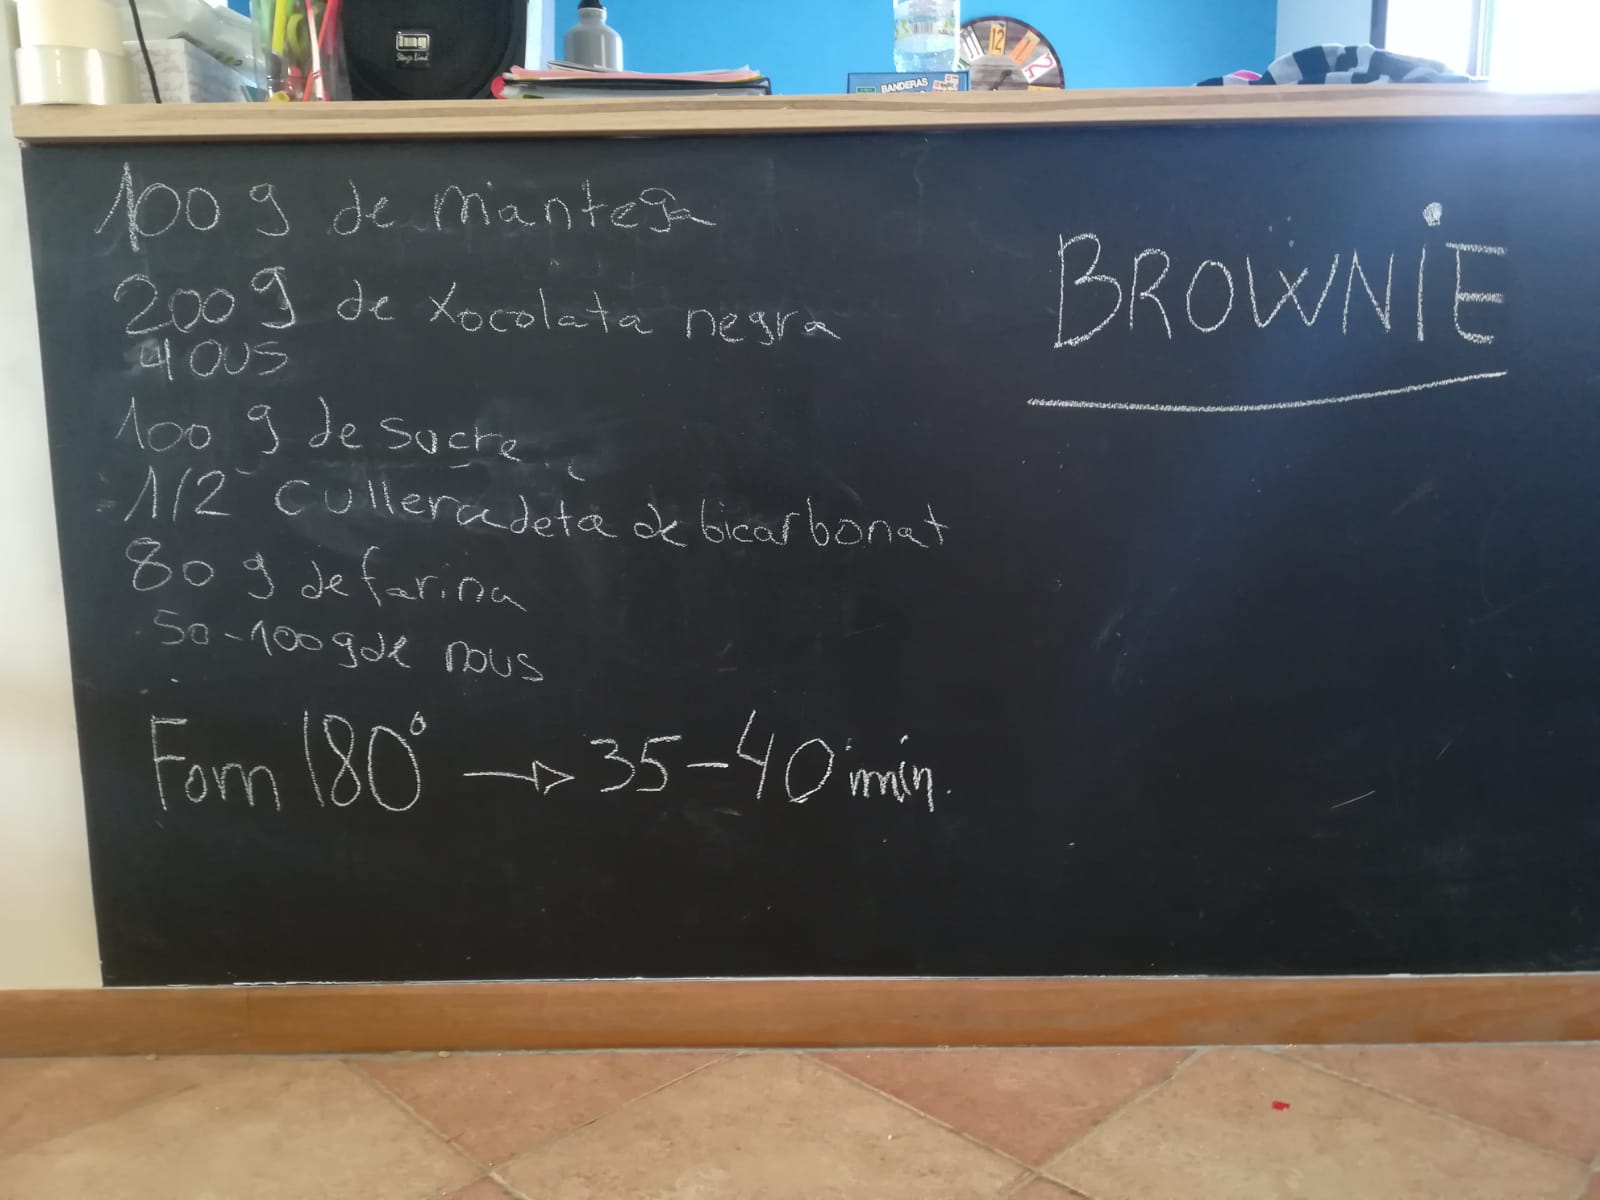 img
Stage Line
BANDERAS
12
100 g de mantega
200 g de xocolata negra
4 OUS
100 g de sucre
1/2 culleradeta de bicarbonat
80 g de farina
50-100 g de nous
Forn 180° → 35-40 min.
BROWNIE